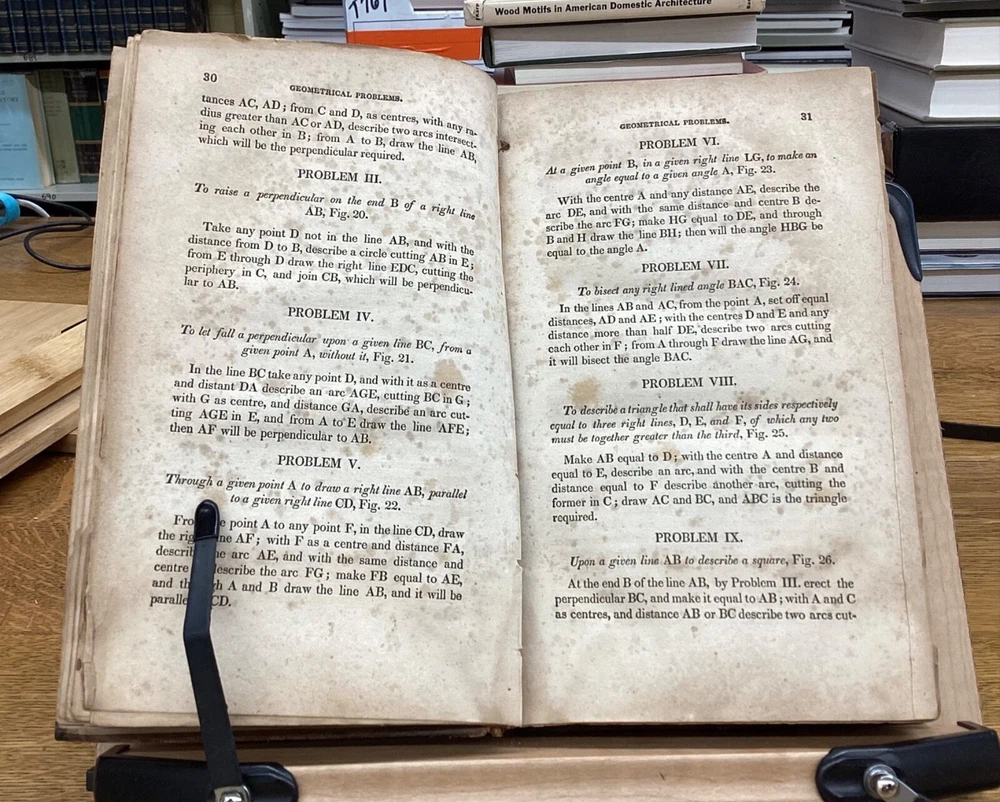 Wood Motifs in American Domestic Architecture
30
GEOMETRICAL PROBLEMS.
tances AC, AD; from C and D, as centres, with any ra-
dius greater than AC or AD, describe two arcs intersect-
ing each other in B; from A to B, draw the line AB,
which will be the perpendicular required.
PROBLEM III.
To raise a perpendicular on the end B of a right line
AB, Fig. 20.
Take any point D not in the line AB, and with the
distance from D to B, describe a circle cutting AB in E;
from E through D draw the right line EDC, cutting the
periphery in C, and join CB, which will be perpendicu-
lar to AB.
PROBLEM IV.
To let fall a perpendicular upon a given line BC, from a
given point A, without it, Fig. 21.
In the line BC take any point D, and with it as a centre
and distant DA describe an arc AGE, cutting BC in G;
with G as centre, and distance GA, describe an arc cut-
ting AGE in E, and from A to E draw the line AFE;
then AF will be perpendicular to AB.
PROBLEM V.
Through a given point A to draw a right line AB, parallel
to a given right line CD, Fig. 22.
Fro e point A to any point F, in the line CD, draw
the rig ne AF; with F as a centre and distance FA,
describ he arc AE, and with the same distance and
centre escribe the arc FG; make FB equal to AE,
and th gh A and B draw the line AB, and it will be
paralle CD.
31
GEOMETRICAL PROBLEMS.
PROBLEM VI.
At a given point B, in a given right line LG, to make an
angle equal to a given angle A, Fig. 23.
With the centre A and any distance AE, describe the
arc DE, and with the same distance and centre B de-
scribe the arc FG; make HG equal to DE, and through
B and H draw the line BH; then will the angle HBG be
equal to the angle A.
PROBLEM VII.
To bisect any right lined angle BAC, Fig. 24.
In the lines AB and AC, from the point A, set off equal
distances, AD and AE; with the centres D and E and any
distance more than half DE, describe two arcs cutting
each other in F; from A through F draw the line AG, and
it will bisect the angle BAC.
PROBLEM VIII.
To describe a triangle that shall have its sides respectively
equal to three right lines, D, E, and F, of which any two
must be together greater than the third, Fig. 25.
Make AB equal to D; with the centre A and distance
equal to E, describe an arc, and with the centre B and
distance equal to F describe another arc, cutting the
former in C; draw AC and BC, and ABC is the triangle
required.
PROBLEM IX.
Upon a given line AB to describe a square, Fig. 26.
At the end B of the line AB, by Problem III. erect the
perpendicular BC, and make it equal to AB; with A and C
as centres, and distance AB or BC describe two arcs cut-